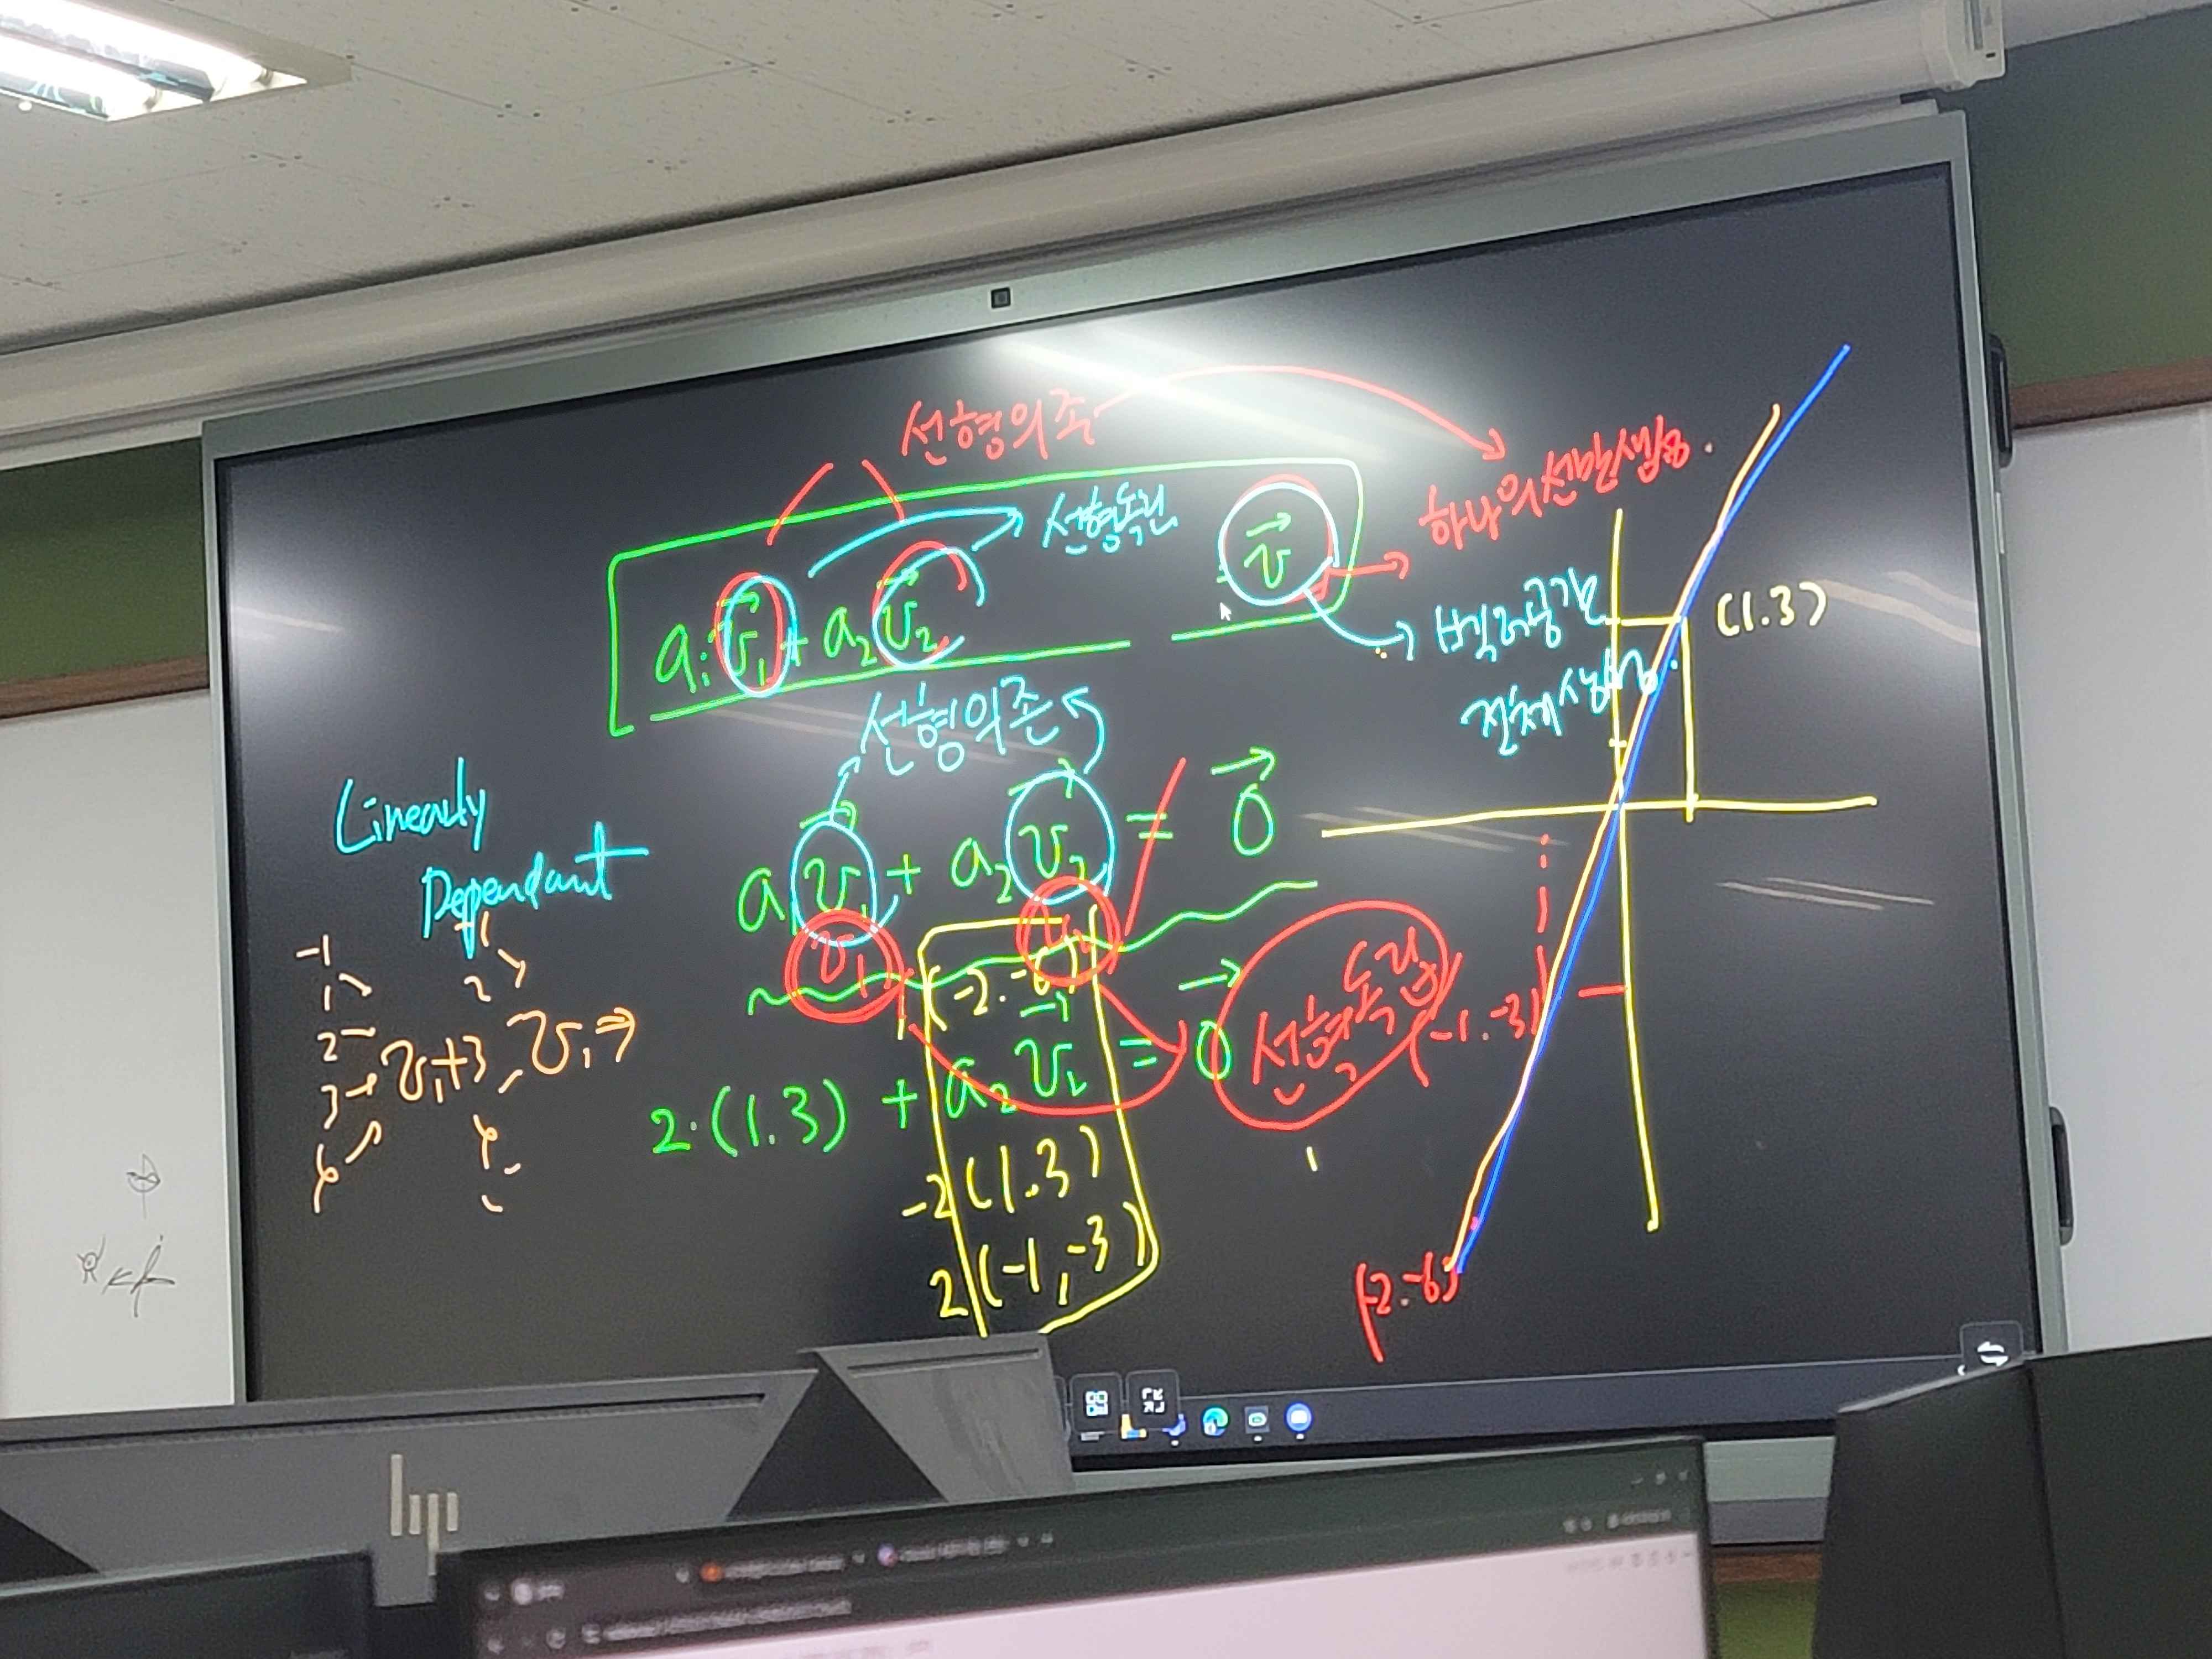 선형의존
하나의 선만 생성.
선형독립
a₁v₁ + a₂v₂ = v
벡터공간
전체 생성.
(1.3)
선형의존
Linearly
Dependant
a₁v₁ + a₂v₂ = 0
v₁
(-2.-6)
선형독립
(-1.-3)
-1
1
2
3
1
2
v₁+3 v₁ ⇒
2·(1.3) + a₂v₂ = 0
-2(1.3)
2(-1,-3)
(-2.-6)
hp